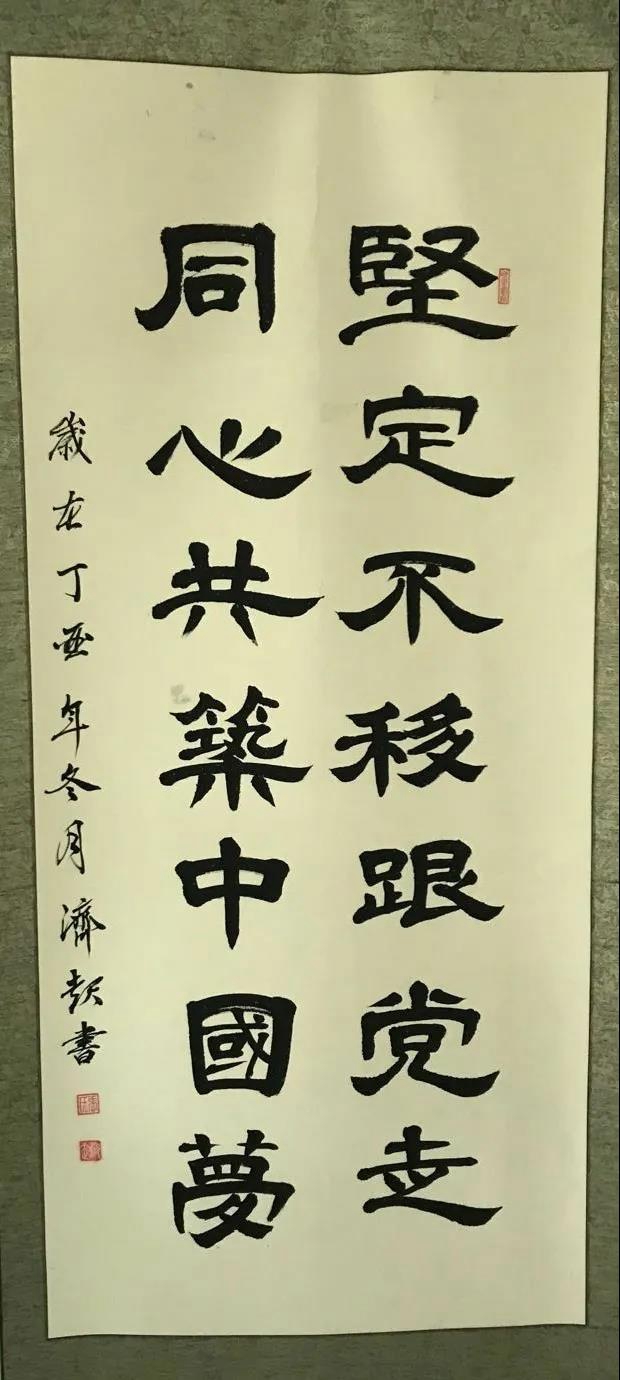 堅定不移跟党走
同心共築中國夢
歲在丁酉年冬月濟乾書